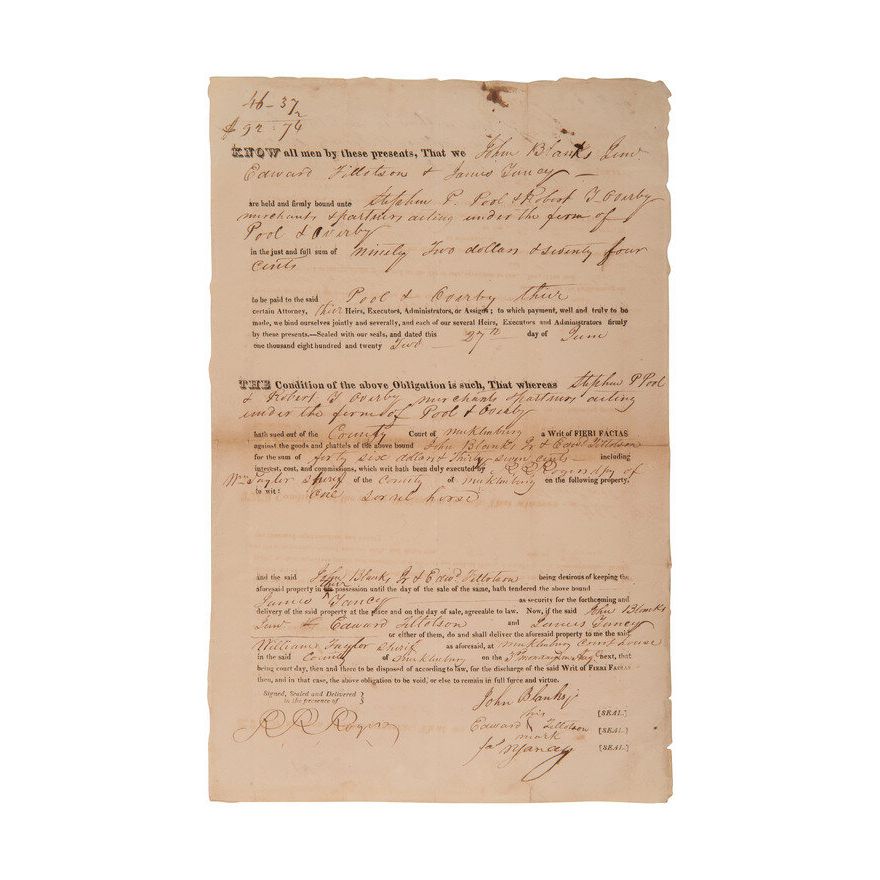 46-37
2
$ 92 : 74
KNOW all men by these presents, That we John Blanks Junr
Edward Tillotson & James Yancy —
are held and firmly bound unto Stephen P. Pool & Robert Y. Overby
merchants & partners acting under the firm of
Pool & Overby
in the just and full sum of ninety Two dollars & seventy four
Cents
to be paid to the said Pool & Overby their
certain Attorney, their Heirs, Executors, Administrators, or Assigns; to which payment, well and truly to be
made, we bind ourselves jointly and severally, and each of our several Heirs, Executors and Administrators firmly
by these presents.—Sealed with our seals, and dated this 27th day of June
one thousand eight hundred and twenty Two —
THE Condition of the above Obligation is such, That whereas Stephen P Pool
& Robert Y Overby merchants & partners acting
under the firm of Pool & Overby
hath sued out of the County Court of mecklenburg a Writ of FIERI FACIAS
against the goods and chattels of the above bound John Blanks Jr & Edwd. Tillotson
for the sum of forty six dollars & Thirty seven cents including
interest, cost, and commissions, which writ hath been duly executed by R R Rogers dpy of
Wm Taylor Sherif of the County of mecklenburg on the following property,
to wit: One sorrel horse
and the said John Blanks Jr & Edwd. Tillotson being desirous of keeping the
aforesaid property in their possession until the day of the sale of the same, hath tendered the above bound
James Yancy as security for the forthcoming and
delivery of the said property at the place and on the day of sale, agreeable to law. Now, if the said John Blanks
Junr & Edward Tillotson and James Yancy
or either of them, do and shall deliver the aforesaid property to me the said
William Taylor Sherif as aforesaid, at mecklenburg Courthouse
in the said County of mecklenburg on the 3rd monday in Augt next, that
being court day, then and there to be disposed of according to law, for the discharge of the said Writ of FIERI FACIAS
then, and in that case, the above obligation to be void, or else to remain in full force and virtue.
Signed, Sealed and Delivered
in the presence of }
R R Rogers
John Blanks jr [SEAL]
his
Edward Tillotson [SEAL]
mark
Jas Yancy [SEAL]